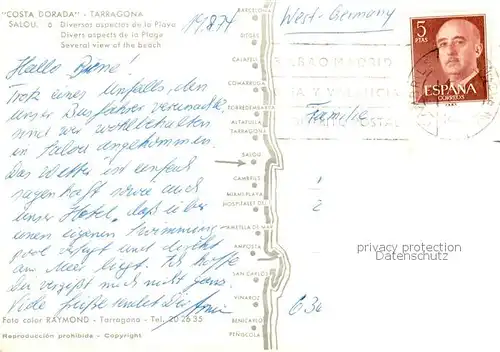 "COSTA DORADA" - TARRAGONA
SALOU. Diversos aspectos de la Playa
Divers aspects de la Plage
Several view of the beach
West-Germany
Hallo
Trotz eines Unfalls, den
unser Busfahrer verursachte,
sind wir wohlbehalten
in Salou angekommen.
Das Wetter ist einfach
sagenhaft sowie auch
unser Hotel, daß über
einen eigenen Swimming
pool verfügt und direkt
am Meer liegt. Ich hoffe
Du vergißt mich nicht ganz.
Viele Grüße sendet Dir
Foto color RAYMOND - Tarragona - Tel. 20 26 35
Reproducción prohibida - Copyright
BARCELONA
SITGES
CALAFELL
COMARRUGA
TORREDEMBARRA
ALTAFULLA
TARRAGONA
SALOU
CAMBRILS
MIAMI-PLAYA
HOSPITALET DE
AMETLLA DE MAR
AMPOSTA
SAN CARLOS
VINAROZ
BENICARLO
PEÑISCOLA
Familie
5
PTAS
ESPAÑA
CORREOS
privacy protection